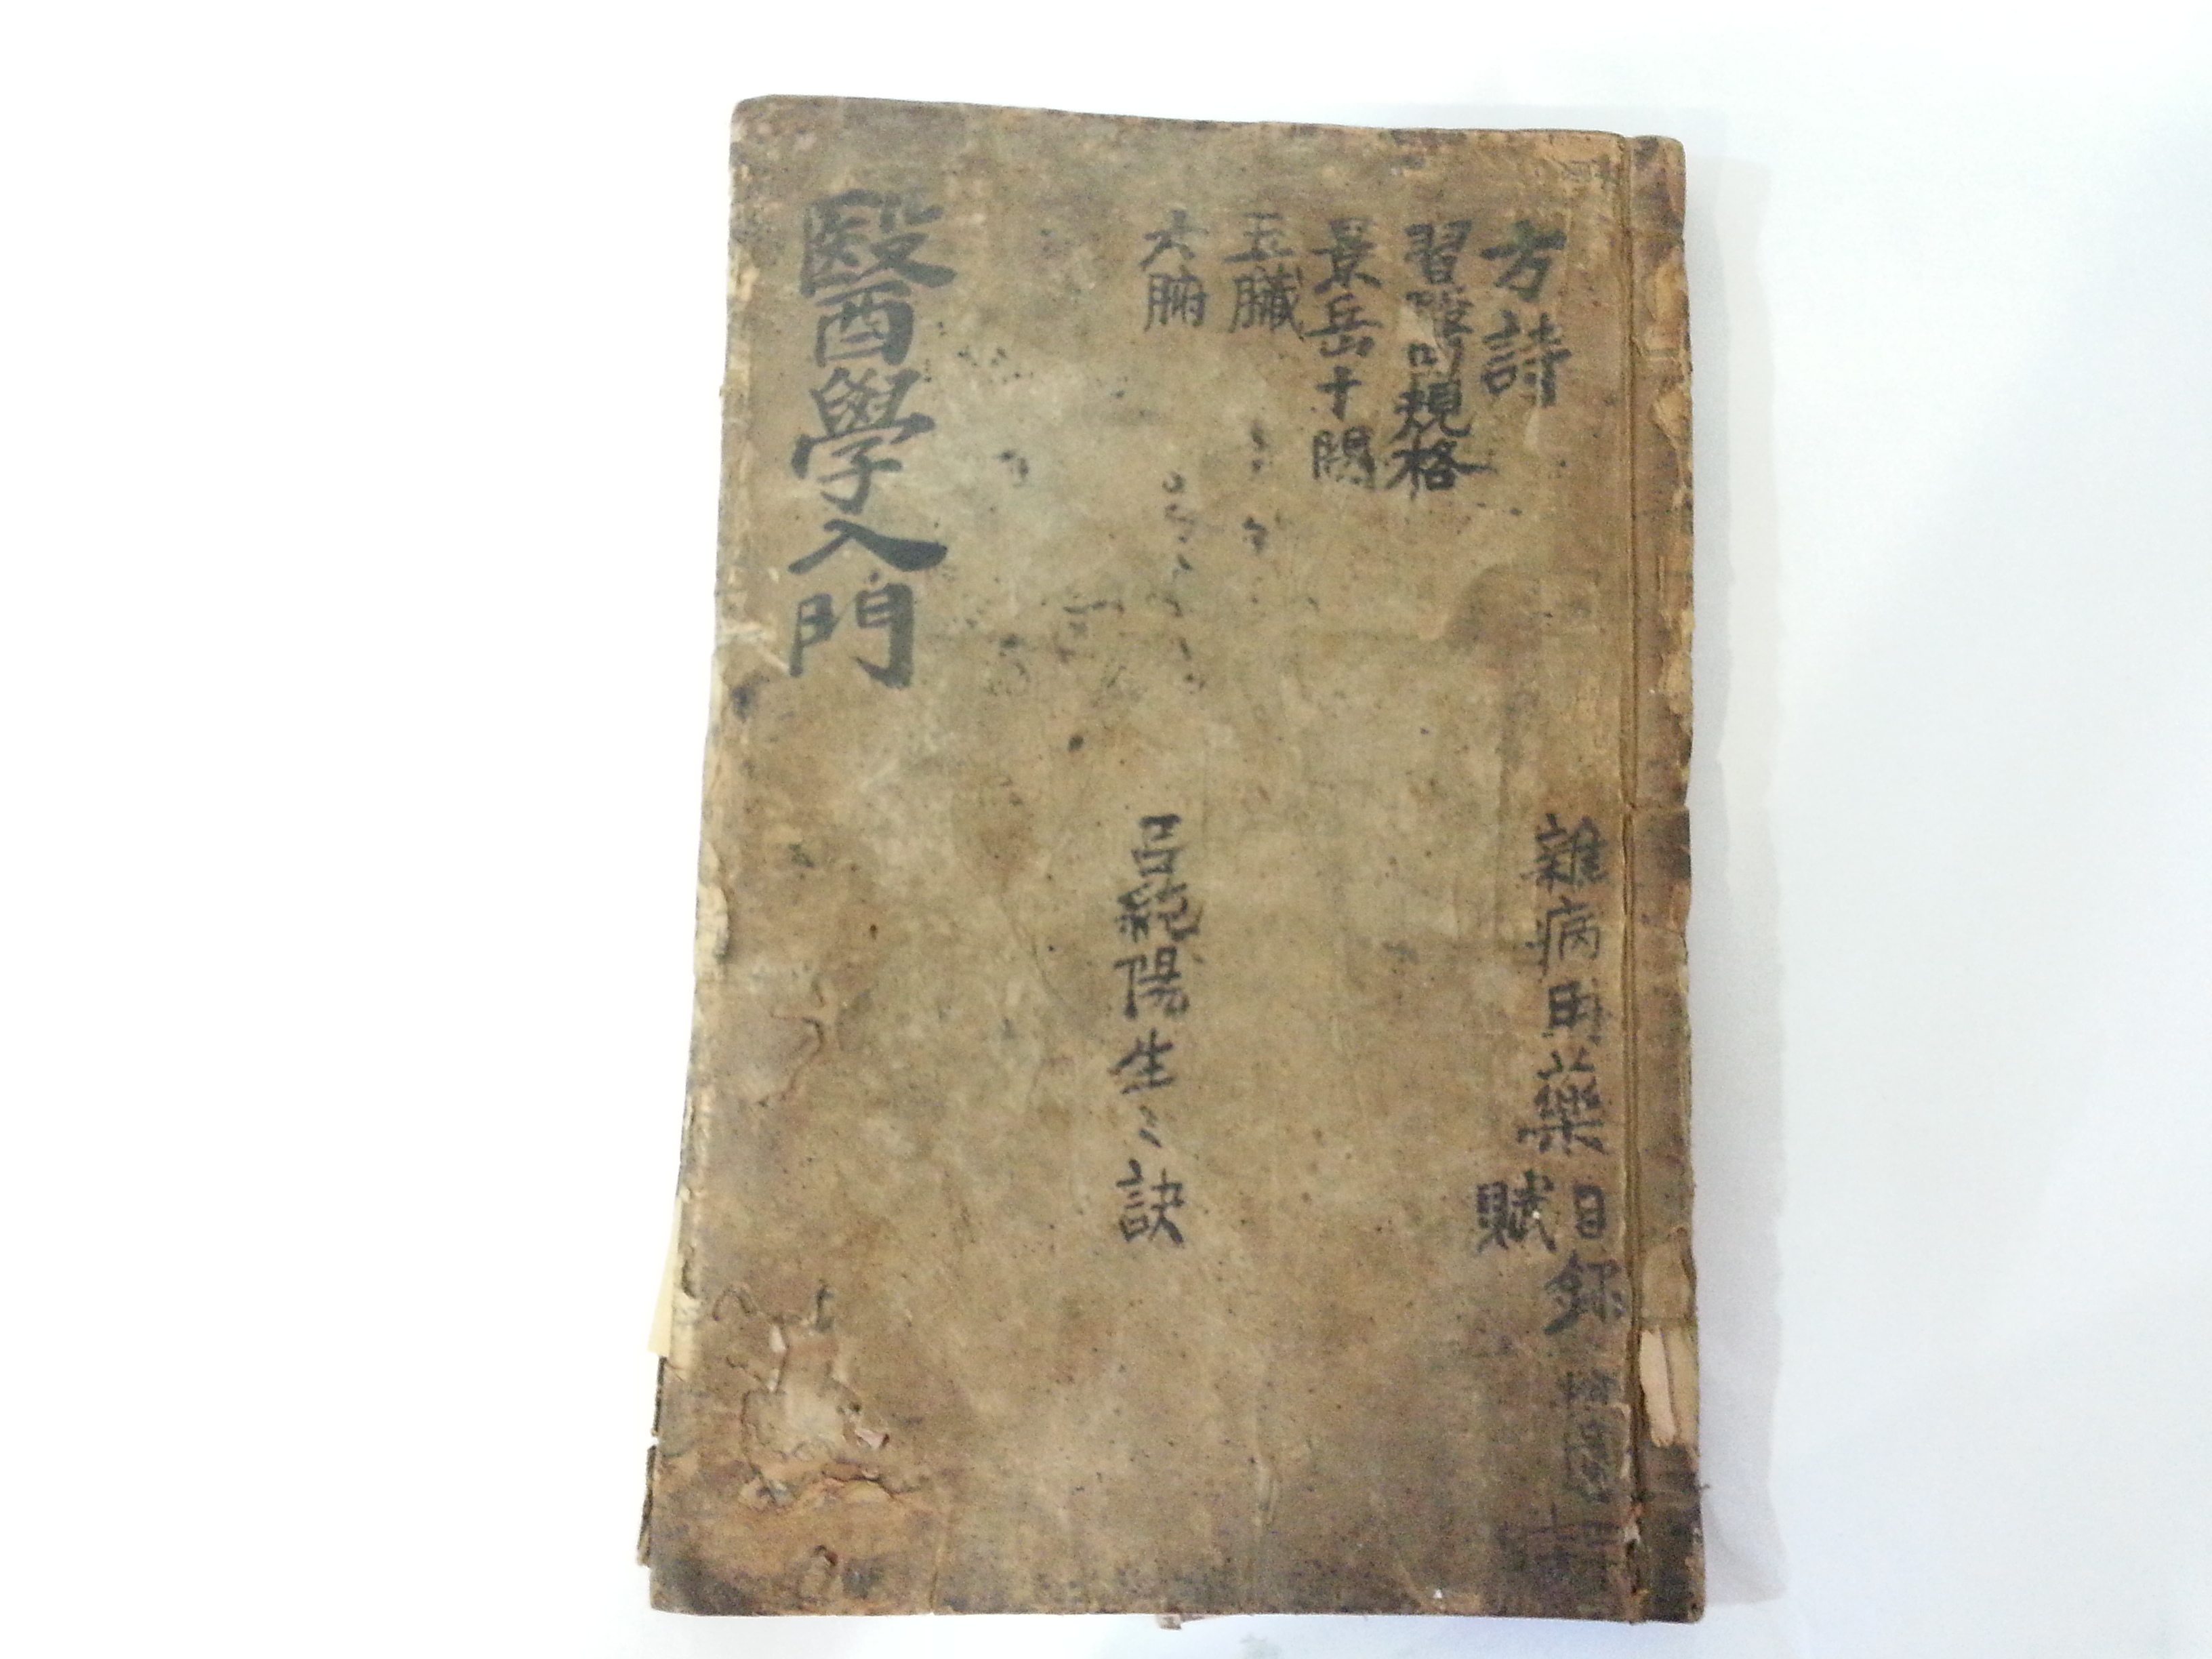 方詩
習醫的規格
景岳十賜
五臟
六腑
醫學入門
雜病用藥
賦
目錄
呂純陽生〻訣